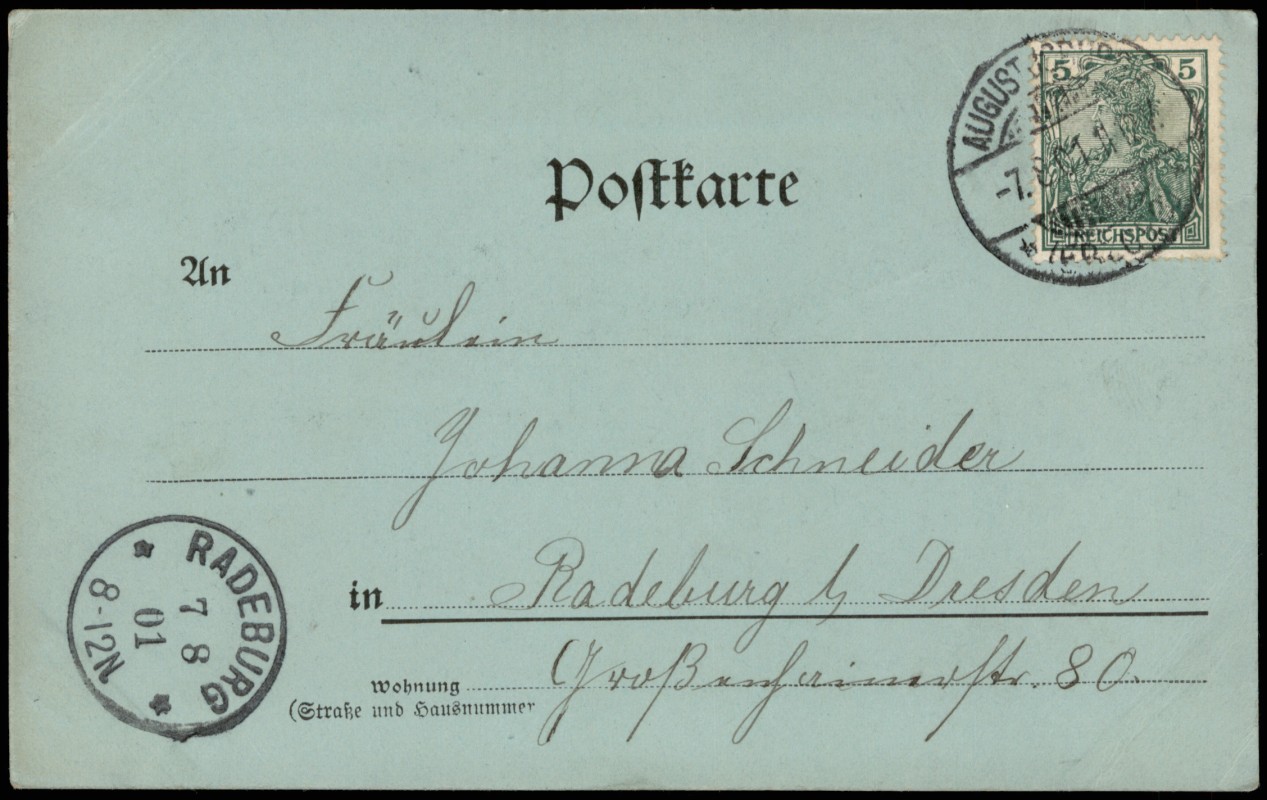 Postkarte
5 5
REICHSPOST
AUGUST
-7.8.01.
An
Fräulein
Johanna Schneider
in Radeburg b/ Dresden
Wohnung Großenhainerstr. 80.
(Straße und Hausnummer
RADEBURG
7 8
01
8-12N